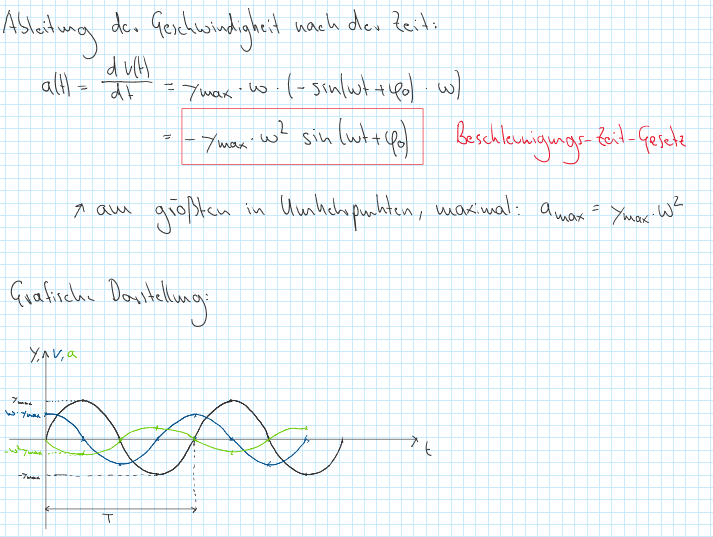 Ableitung der Geschwindigkeit nach der Zeit:
a(t) = dv(t)/dt = ymax · ω · (- sin(ωt + φ0) · ω)
= - ymax · ω² sin(ωt + φ0) Beschleunigungs-Zeit-Gesetz
↗ am größten in Umkehrpunkten, maximal: amax = ymax · ω²
Grafische Darstellung:
y, v, a
ymax
ω·ymax
-ω²ymax
t
-ymax
T